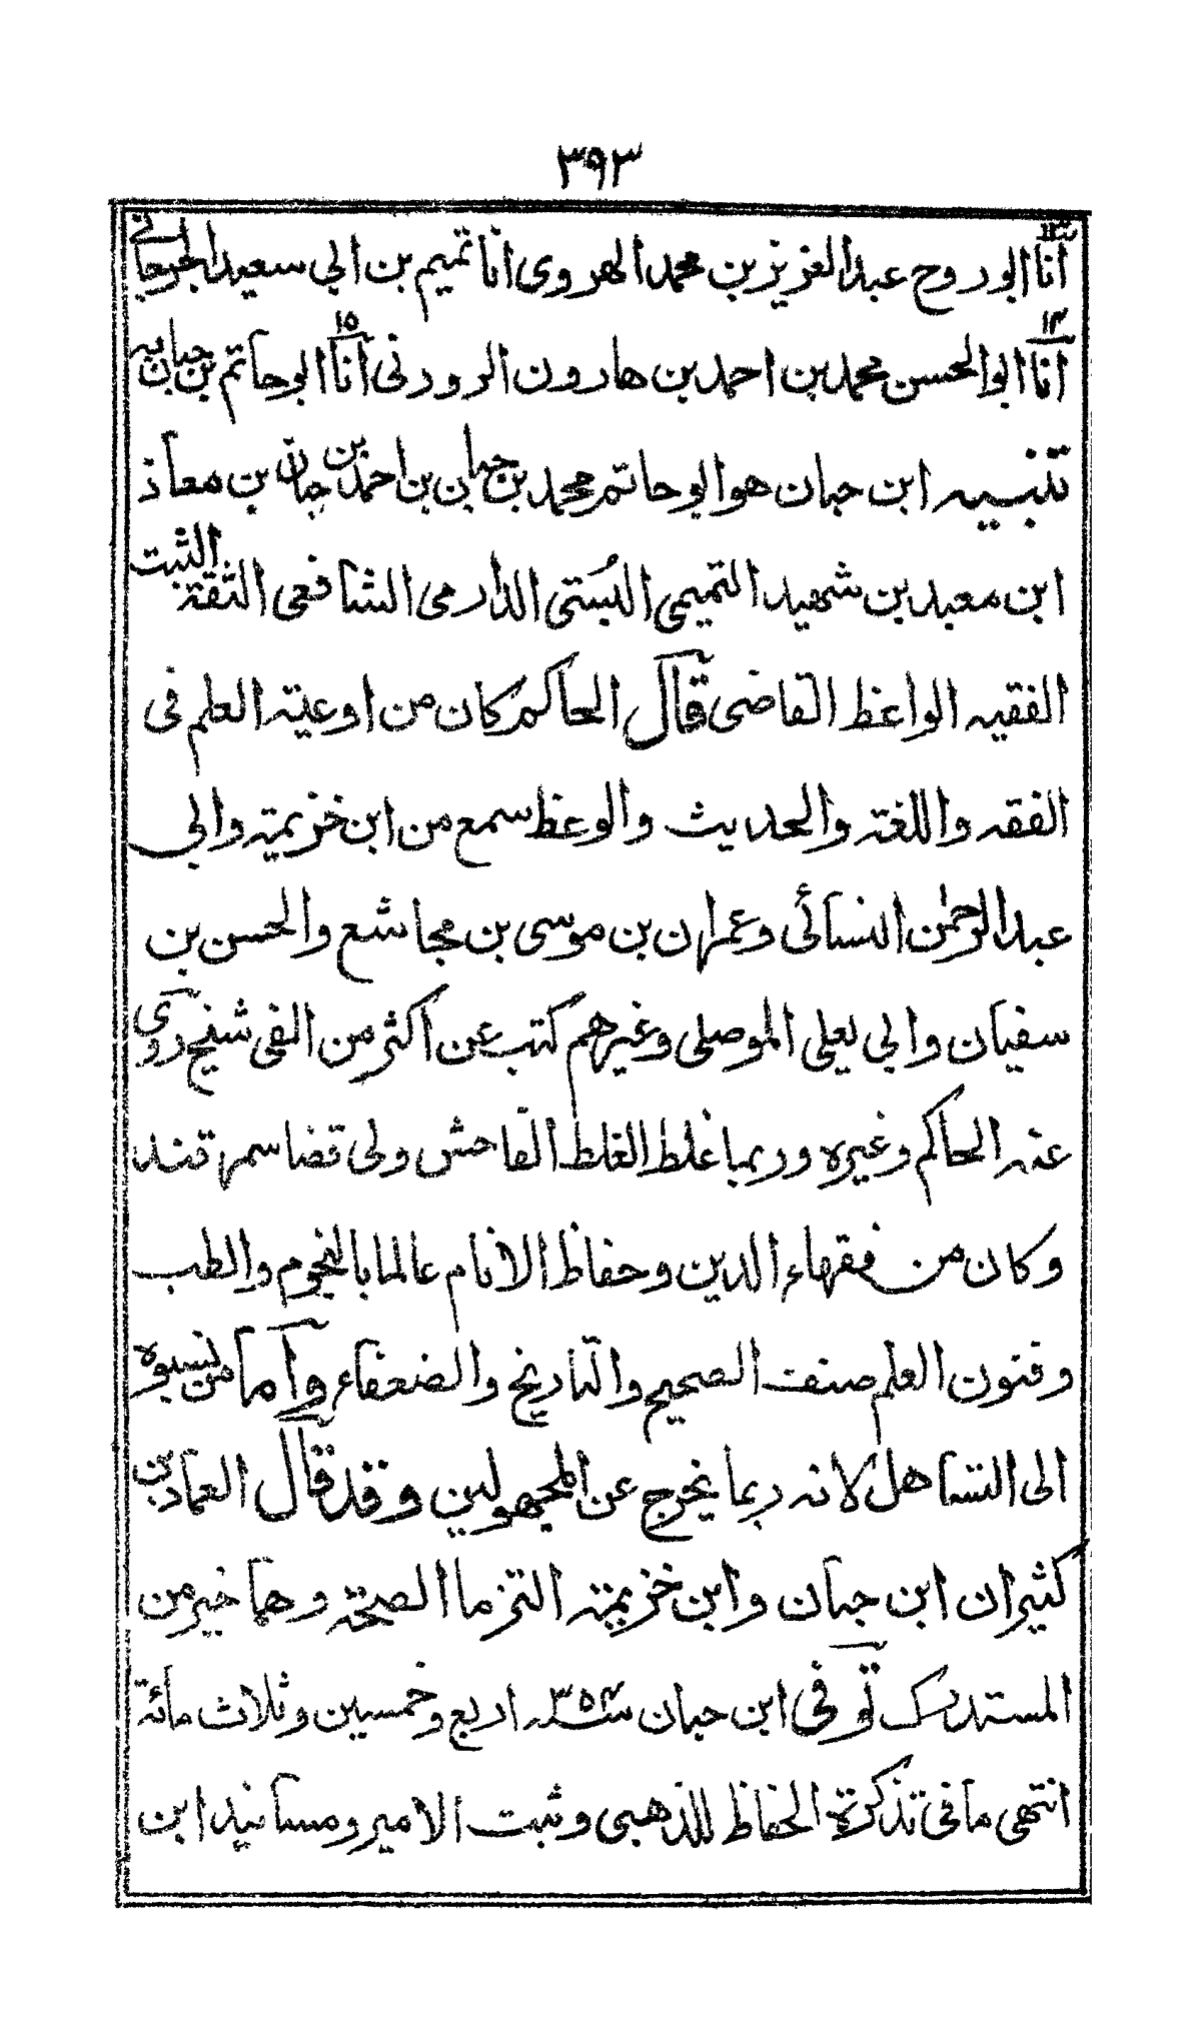 ٣٩٣
١٣ انا ابو روح عبد العزيز بن محمد الهروى انا تميم بن ابي سعيد الجرجانے
١٤ انا ابو الحسن محمد بن احمد بن هارون الروزنى ١٥ انا ابو حاتم بن حبان به
تنبيه ابن حبان هو ابو حاتم محمد بن حبان بن احمد بن حبان بن معاذ
ابن معبد بن شهيد التميمي البُستي الدارمى الشافعى الثقة الثبت
الفقيه الواعظ القاضى قال الحاكم كان من اوعية العلم فى
الفقه واللغة والحديث والوعظ سمع من ابن خزيمة وابي
عبد الرحمٰن النسائى وعمران بن موسى بن مجاشع والحسن بن
سفيان وابي يعلي الموصلي وغيرهم كتب عن اكثر من الفى شيخ روى
عنه الحاكم وغيره وربما غلط الغلط الفاحش ولى قضا سمرقند
وكان من فقهاء الدين وحفاظ الانام عالما بالنجوم والطب
وفنون العلم صنف الصحيح والتاريخ والضعفاء واما من نسبوه
الى التساهل لانه ربما يخرج عن المجهولين وقد قال العماد بن
كثير ان ابن حبان وابن خزيمة التزما الصحة وهما خير من
المستدرك توفى ابن حبان سنة ٣٥٤ اربع وخمسين وثلاث مائة
انتهى ما فى تذكرة الحفاظ للذهبى وثبت الامير ومسانيد ابن